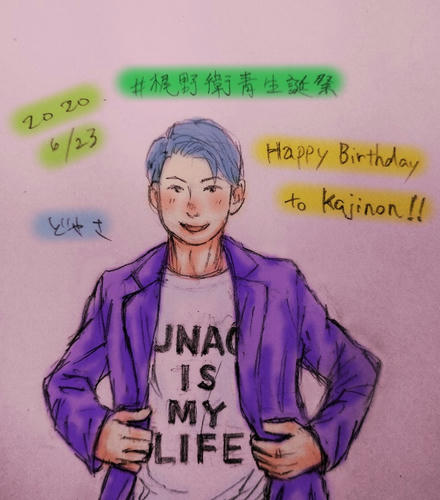 #梶野衛青生誕祭
2020
6/23
Happy Birthday
to Kajinon!!
どやさ
IS
MY
LIFE